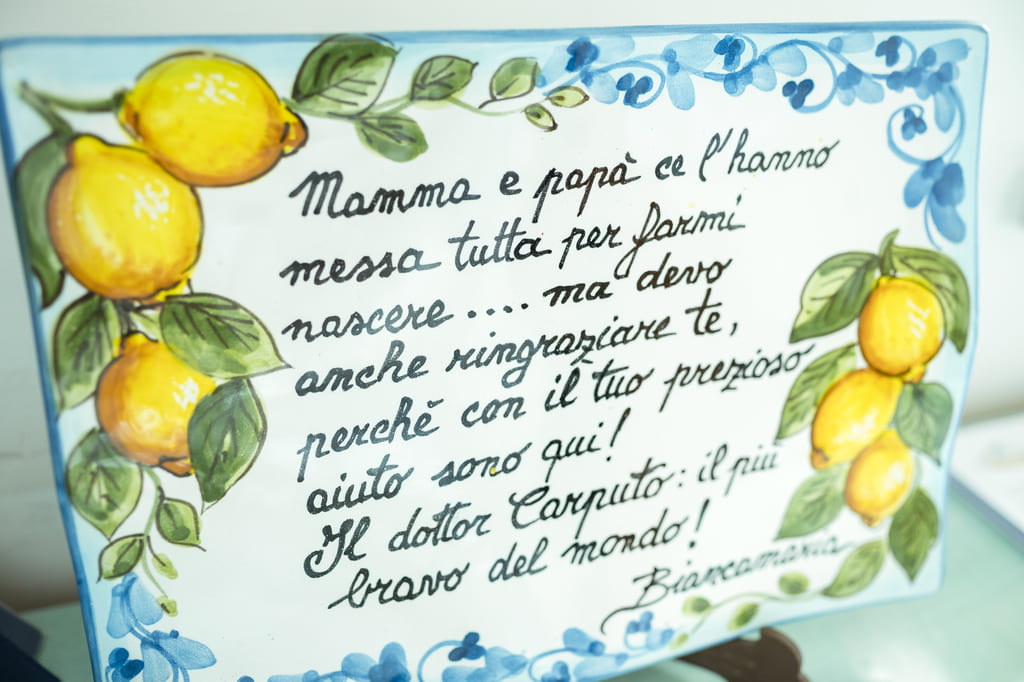 Mamma e papà ce l'hanno
messa tutta per farmi
nascere.... ma devo
anche ringraziare te,
perchè con il tuo prezioso
aiuto sono qui!
Il dottor Carputo: il più
bravo del mondo!
Biancamaria